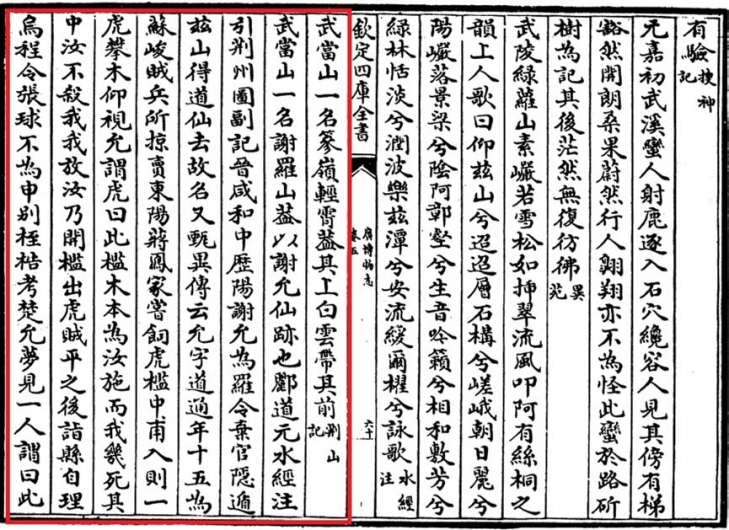 有驗搜神記
元嘉初武溪蠻人射鹿逐入石穴纔容人見其傍有梯
豁然開朗桑果蔚然行人翺翔亦不為怪此蠻於路斫
樹為記其後茫然無復彷彿異苑
武陵綠蘿山素巖若雪松如插翠流風叩阿有絲桐之
韻土人歌曰仰兹山兮迢迢層石構兮嵯峨朝日麗兮
陽巖落景梁兮陰阿鄣壑兮生音吟籟兮相和敷芳兮
綠林恬淡兮潤波樂兹潭兮安流緩爾櫂兮詠歌水經注
欽定四庫全書 廣博物志 卷五 六十
武當山一名篸嶺輕霄蓋其上白雲帶其前荆山記
武當山一名謝羅山葢以謝允仙跡也酈道元水經注
引荆州圖副記晉咸和中歷陽謝允為羅令棄官隱遁
兹山得道仙去故名又甄異傳云允字道通年十五為
蘇峻賊兵所掠賣東陽蔣鳳家嘗飼虎檻中甫入則一
虎攀木仰視允謂虎曰此檻木本為汝施而我幾死其
中汝不殺我我放汝乃開檻出虎賊平之後詣縣自理
烏程令張球不為申別桎梏考楚允夢見一人謂曰此